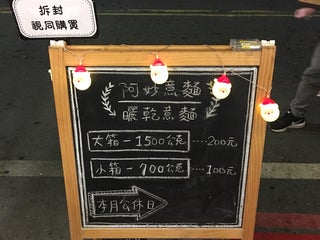 拆封
視同購買
阿妙意麵
曬乾意麵
大箱-1500公克····200元
小箱-700公克····100元
本月公休日